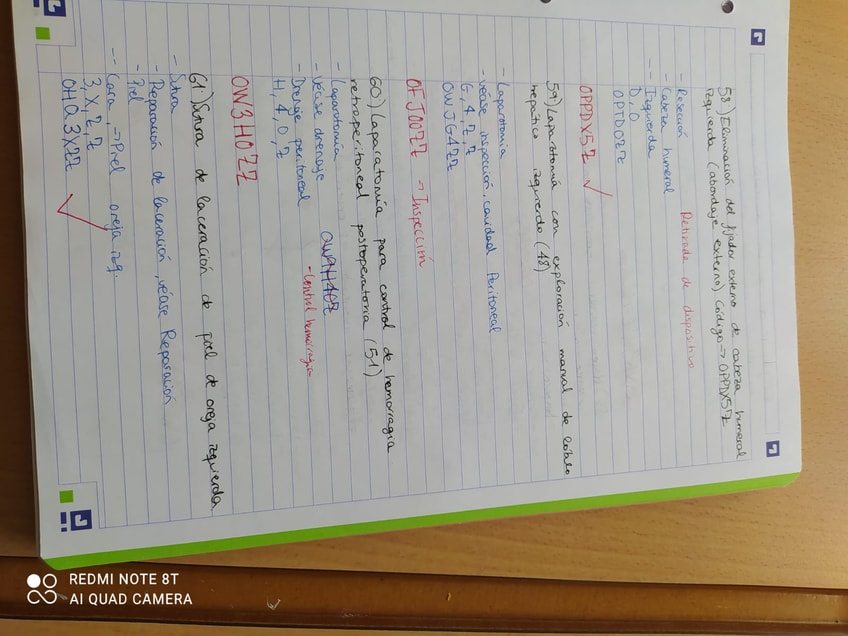 58) Eliminación del fijador externo de cabeza humeral
izquierda (abordaje externo) Código → OPPDX5Z
Retirada de dispositivo
- Resección
- Cabeza humeral
-- Izquierda
D, 0
OPTD0ZZ
OPPDX5Z ✓
59) Laparotomía con exploración manual de lóbulo
hepático izquierdo (48)
- Laparotomía
- Véase inspección, cavidad Peritoneal
G, 4, Z, Z
OWJG4ZZ
OFJ00ZZ → Inspección
60) Laparatomía para control de hemorragia
retroperitoneal postoperatoria (51)
- Laparotomía
- Véase drenaje OW9H40Z
- Drenaje peritoneal - Control hemorragia
H, 4, 0, Z
OW3H0ZZ
61) Sutura de laceración de piel de oreja izquierda
- Sutura
- Reparación de laceración, véase Reparación
- Piel
-- Cara → Piel oreja izq.
3, X, Z, Z
OHQ3XZZ ✓
REDMI NOTE 8T
AI QUAD CAMERA